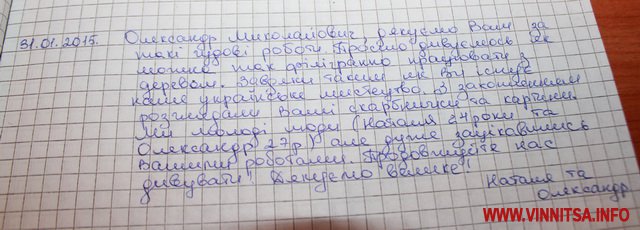 31.01.2015. Олександр Миколайович, дякуємо Вам за
такі чудові роботи. Просто дивуємось як
можна так філігранно працювати з
деревом. Завдяки таким як Ви існує
наше українське мистецтво. З захопленням
розглядали Ваші скарбнички та картини.
Ми молоді люди (Наталя 24 роки та
Олександр 27р) але дуже зацікавились
Вашими роботами. Продовжуйте нас
дивувати! Дякуємо велике!
Наталя та
Олександр
WWW.VINNITSA.INFO